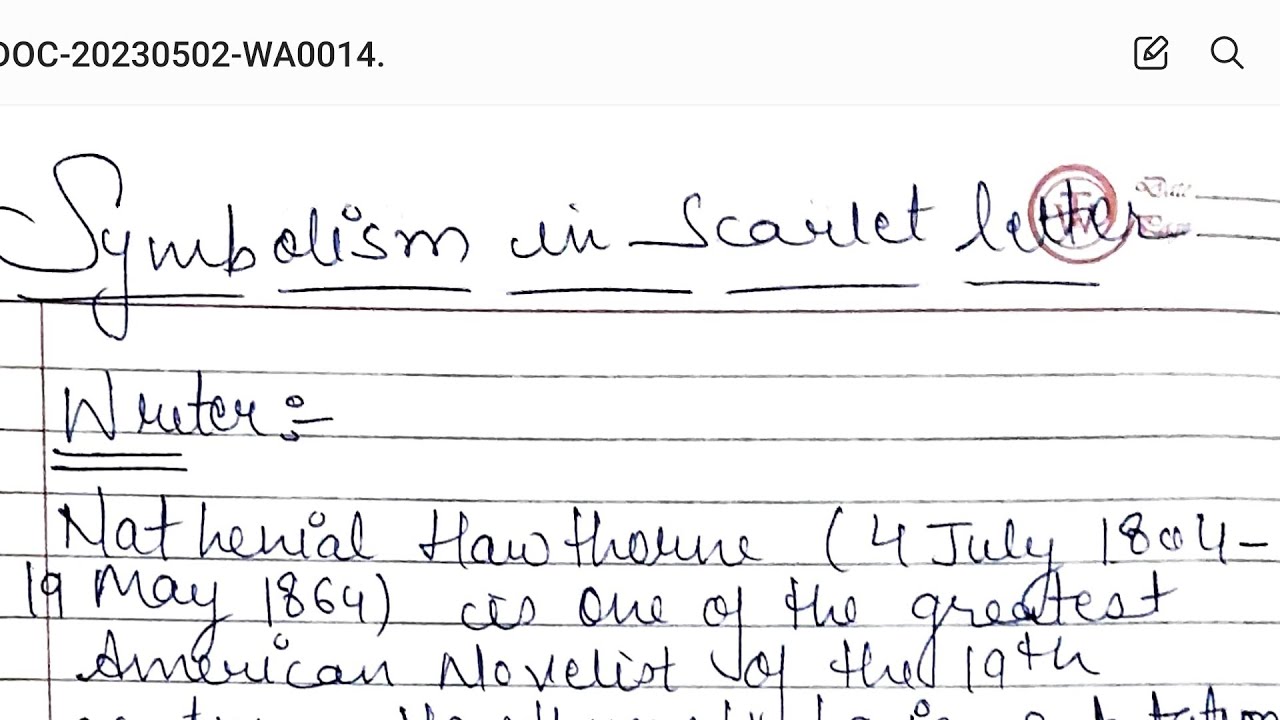 DOC-20230502-WA0014.
Symbolism in Scarlet letter
Writer :-
Nathenial Hawthorne (4 July 1804-
19 May 1864) is one of the greatest
American Novelist of the 19th